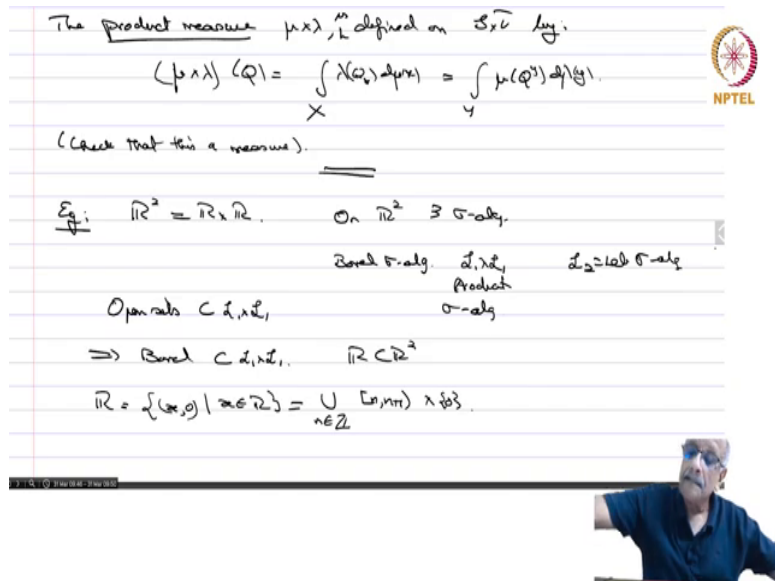 The product measure μ×λ, is defined on S×τ by:
(μ×λ)(Q) = ∫_X λ(Q_x) dμ(x) = ∫_Y μ(Q^y) dλ(y).
NPTEL
(Check that this a measure).
Eg: ℝ² = ℝ×ℝ. On ℝ² 3 σ-alg.
Borel σ-alg. ℒ₁×ℒ₁ ℒ₂=Leb σ-alg
Product
Open sets ⊂ ℒ₁×ℒ₁ σ-alg
⇒ Borel ⊂ ℒ₁×ℒ₁. ℝ⊂ℝ²
ℝ = {(x,0) | x∈ℝ} = ∪_{n∈ℤ} [n,n+1) × {0}.